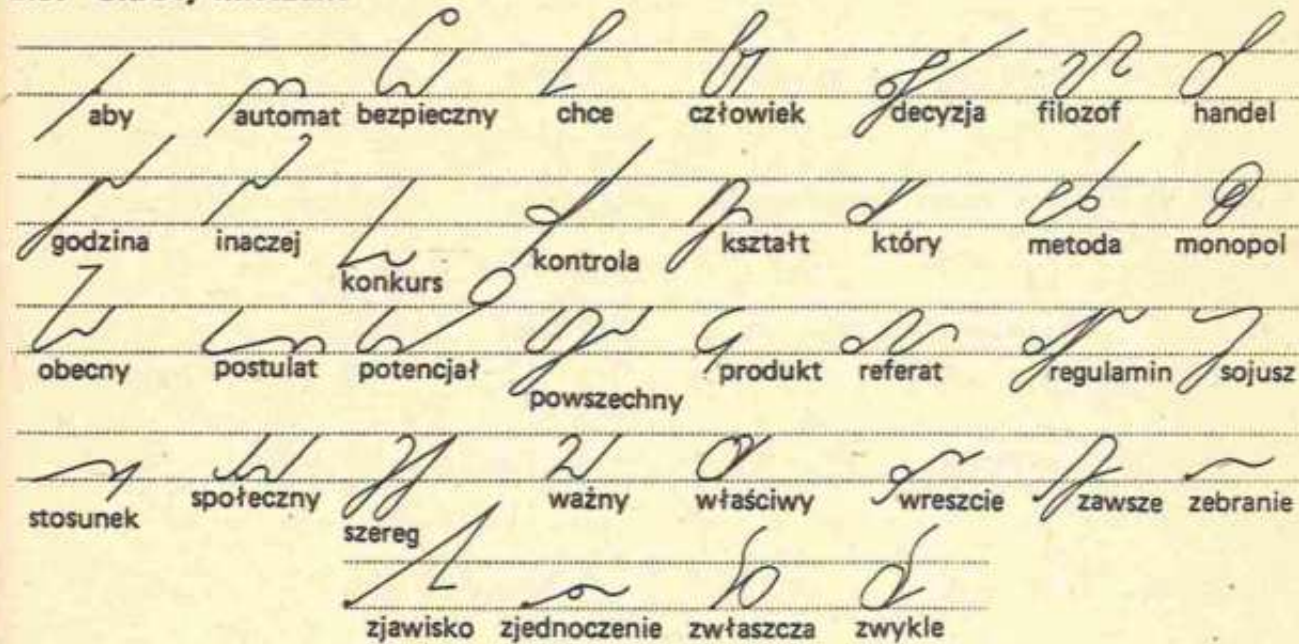 aby automat bezpieczny chce człowiek decyzja filozof handel
godzina inaczej konkurs kontrola kształt który metoda monopol
obecny postulat potencjał powszechny produkt referat regulamin sojusz
stosunek społeczny szereg ważny właściwy wreszcie zawsze zebranie
zjawisko zjednoczenie zwłaszcza zwykle